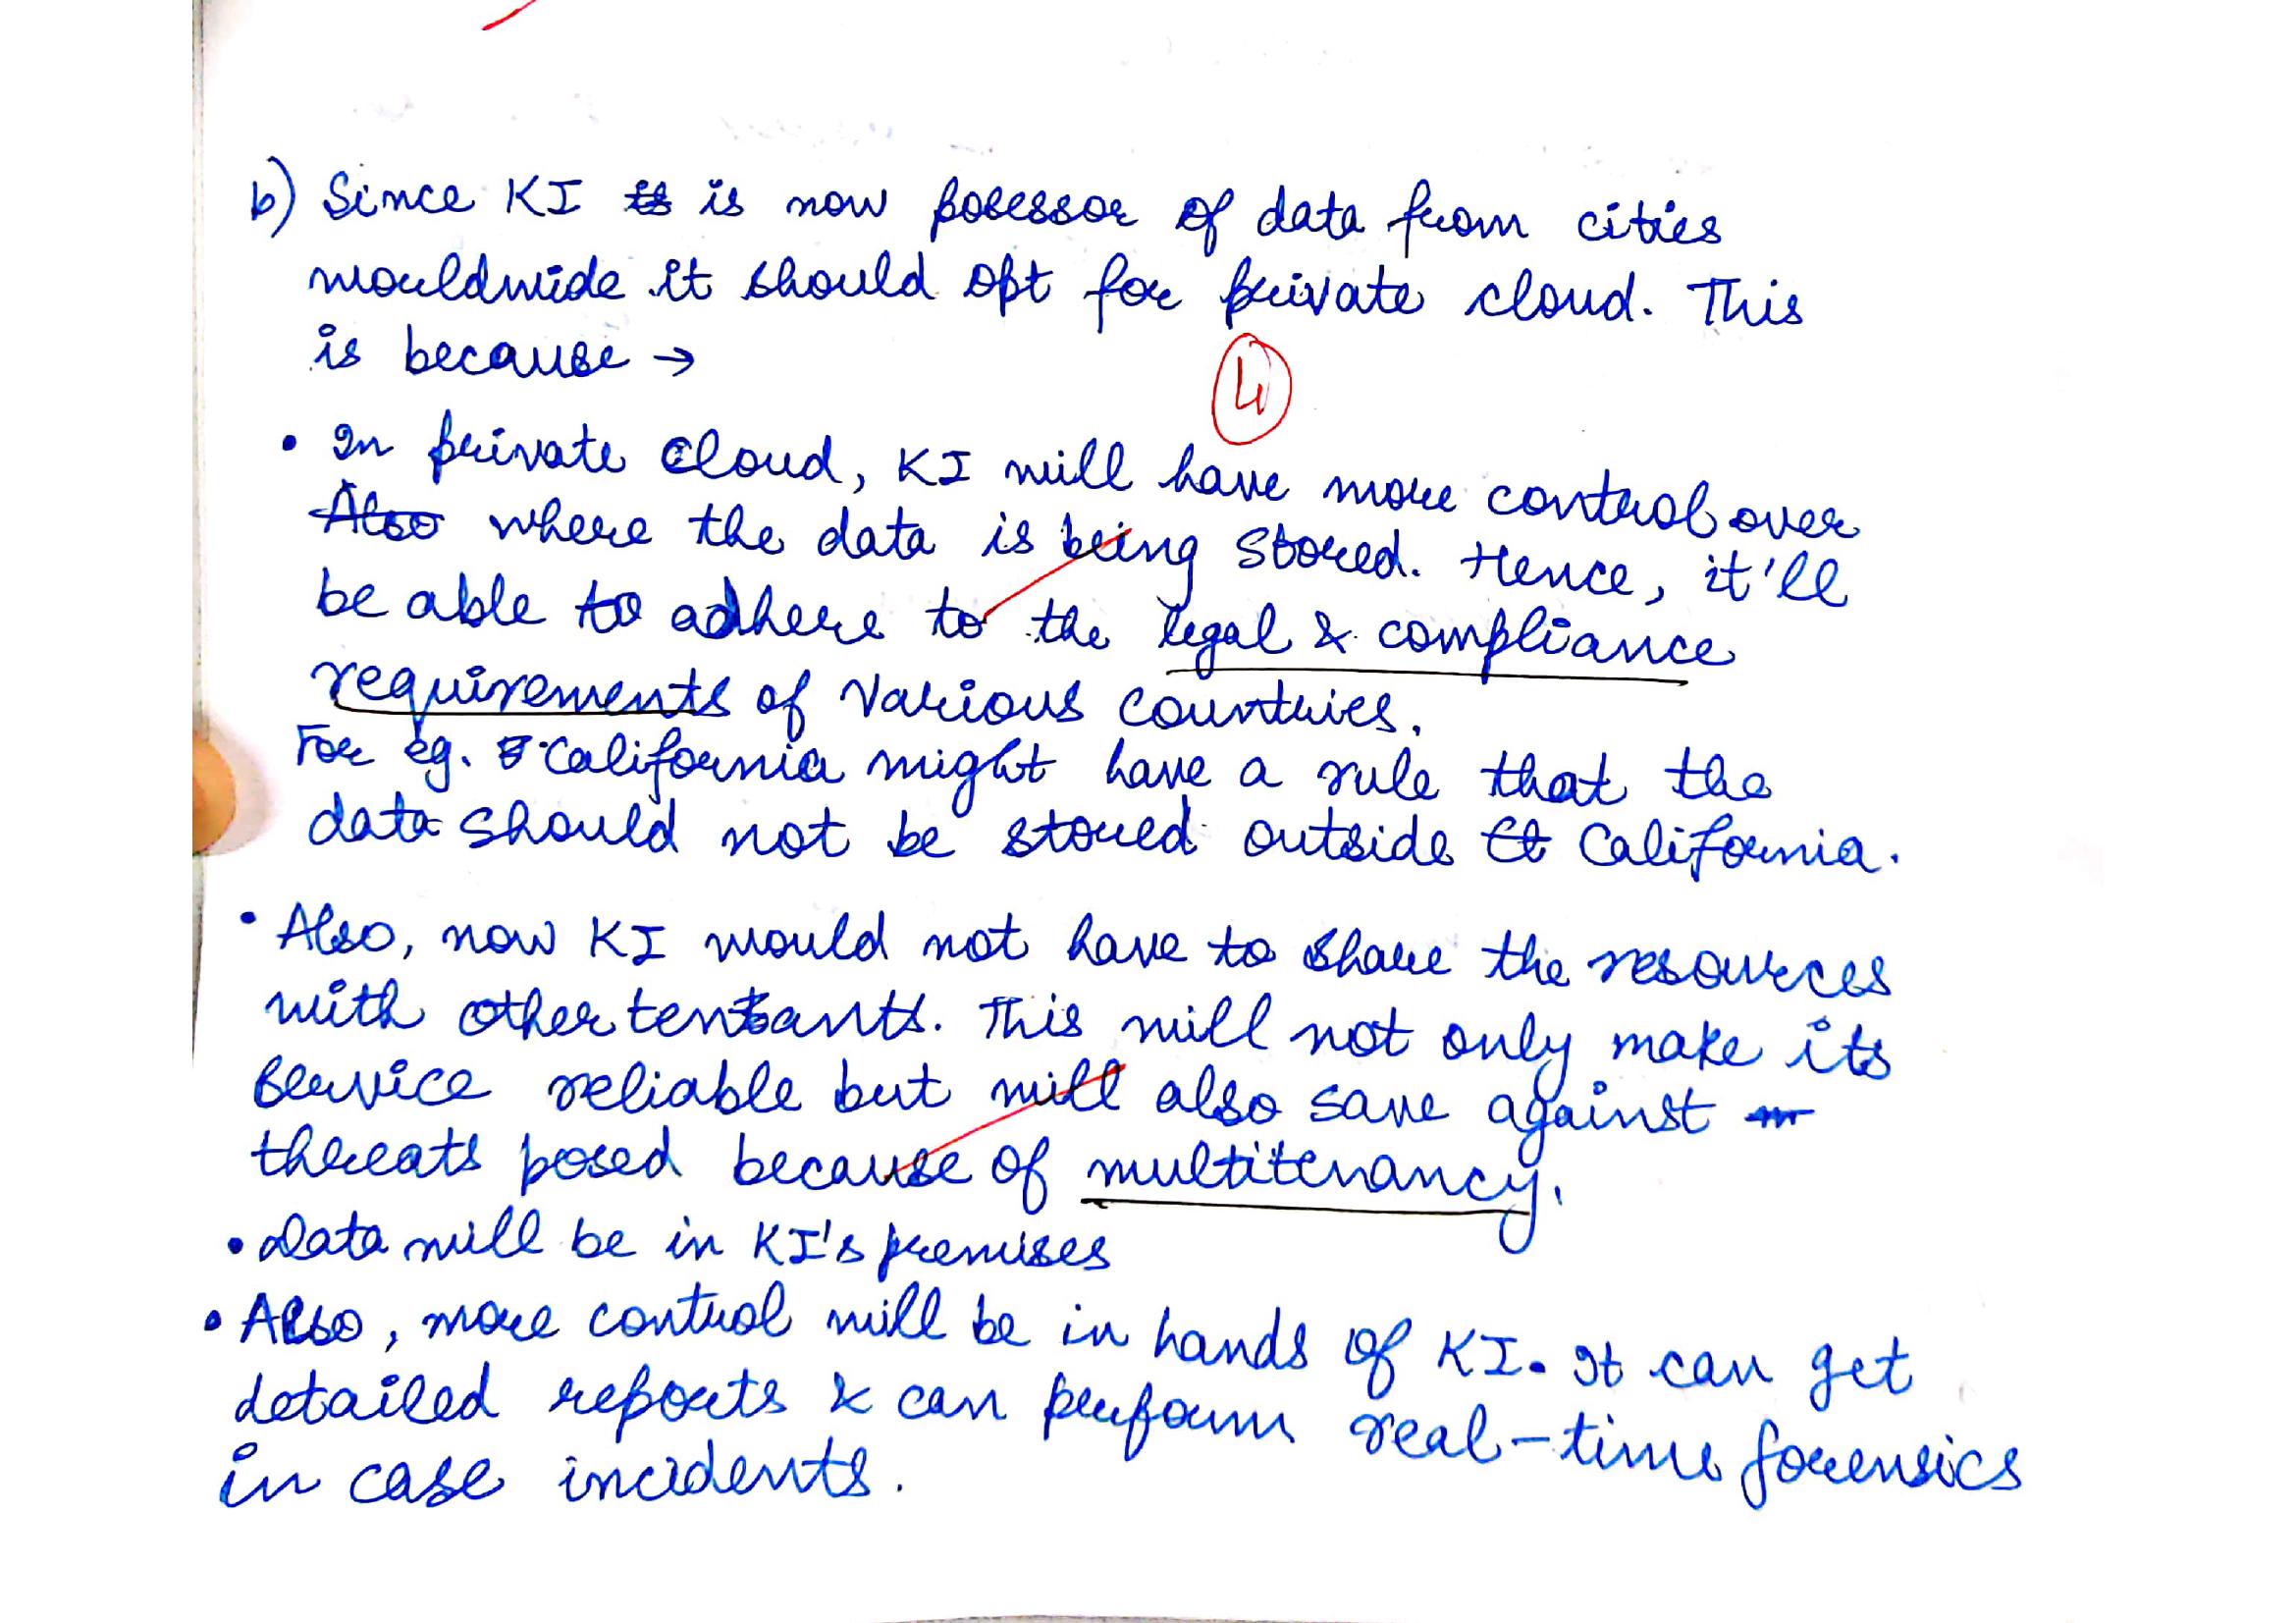 b) Since KI is is now posessor of data from cities
worldwide it should opt for private cloud. This
is because →
4
• In private cloud, KI will have more control over
Also where the data is being stored. Hence, it'll
be able to adhere to the legal & compliance
requirements of various countries.
For eg. California might have a rule that the
data should not be stored outside California.
• Also, now KI would not have to share the resources
with other tenants. This will not only make its
service reliable but will also save against
threats posed because of multitenancy.
• Data will be in KI's premises
• Also, more control will be in hands of KI. It can get
detailed reports & can perform real-time forensics
in case incidents.